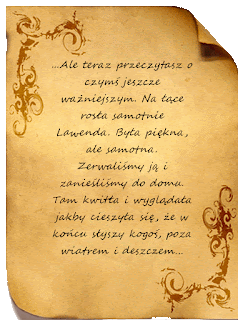 ...Ale teraz przeczytasz o
czymś jeszcze
ważniejszym. Na łące
rosła samotnie
Lawenda. Była piękna,
ale samotna.
Zerwaliśmy ją i
zanieśliśmy do domu.
Tam kwitła i wyglądała
jakby cieszyła się, że w
końcu słyszy kogoś, poza
wiatrem i deszczem...